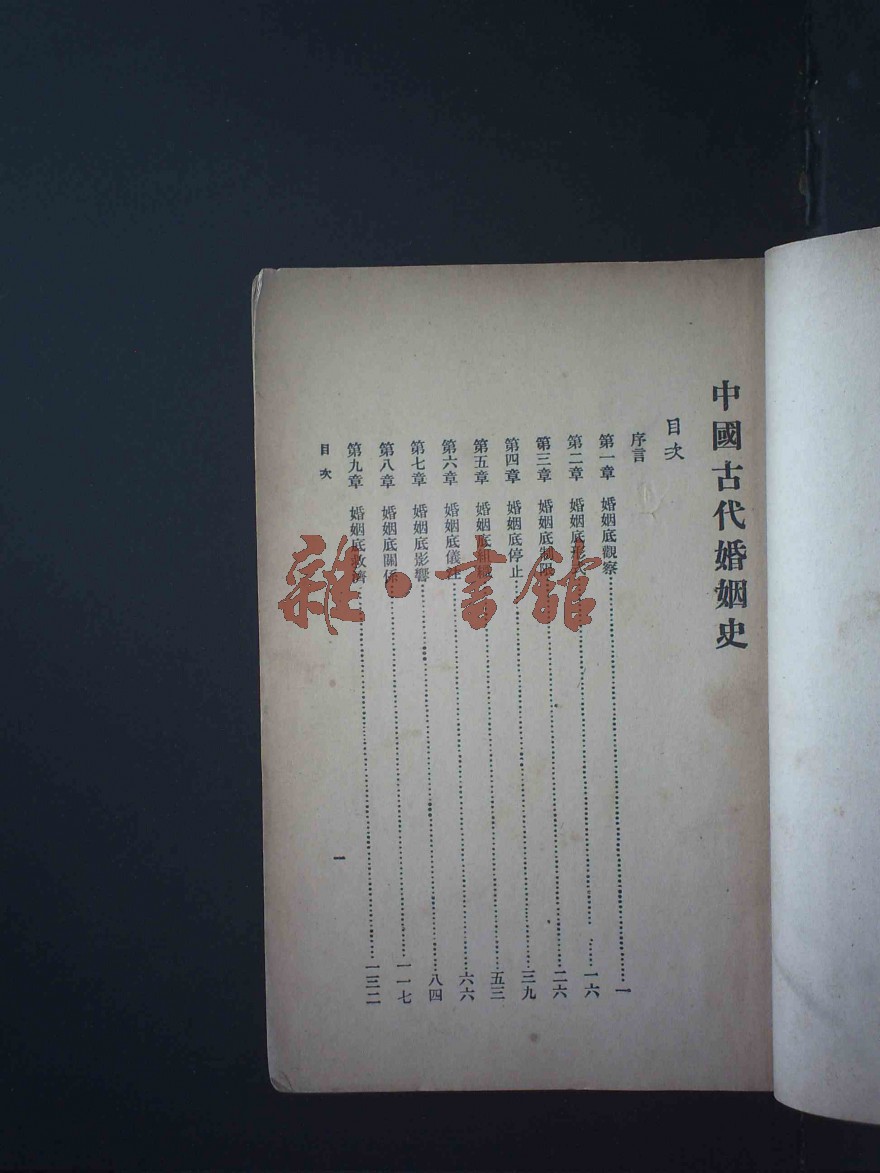 中國古代婚姻史
目次
序言
第一章 婚姻底觀察……一
第二章 婚姻底形式……一六
第三章 婚姻底制限……二六
第四章 婚姻底停止……三九
第五章 婚姻底組織……五三
第六章 婚姻底儀注……六六
第七章 婚姻底影響……八四
第八章 婚姻底關係……一一七
第九章 婚姻底救濟……一三二
目次
一
雜·書館